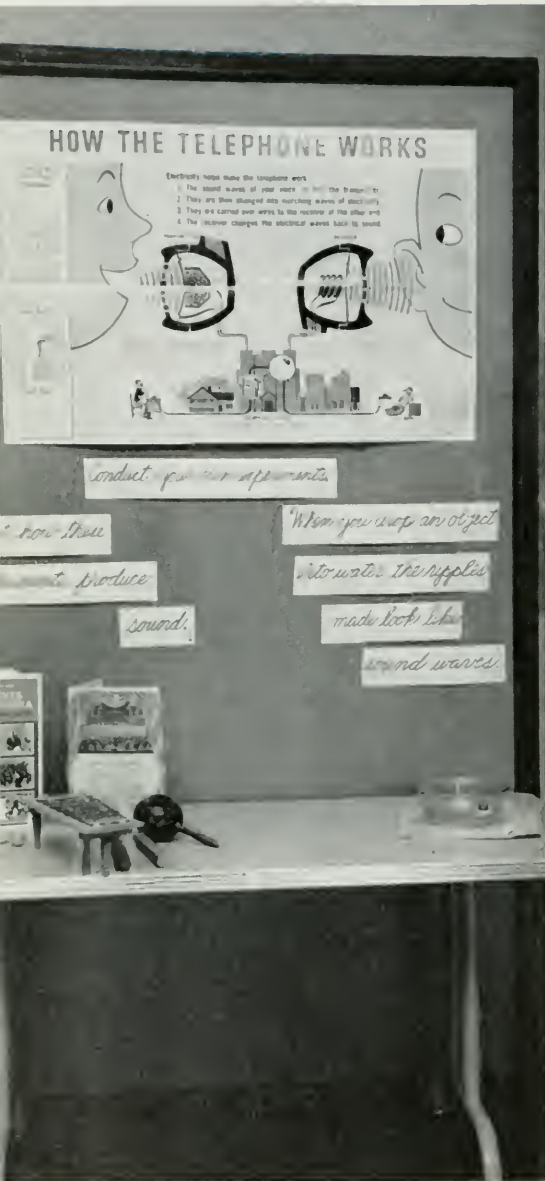 HOW THE TELEPHONE WORKS
Electricity helps make the telephone work
1 The sound waves of your voice the transmitter
2 They are then changed into matching waves of electricity
3 They are carried over wires to the receiver at the other end
4 The receiver changes the electrical waves back to sound
conduct your own experiments.
how these
produce
sound.
When you drop an object
into water the ripples
made look like
sound waves.